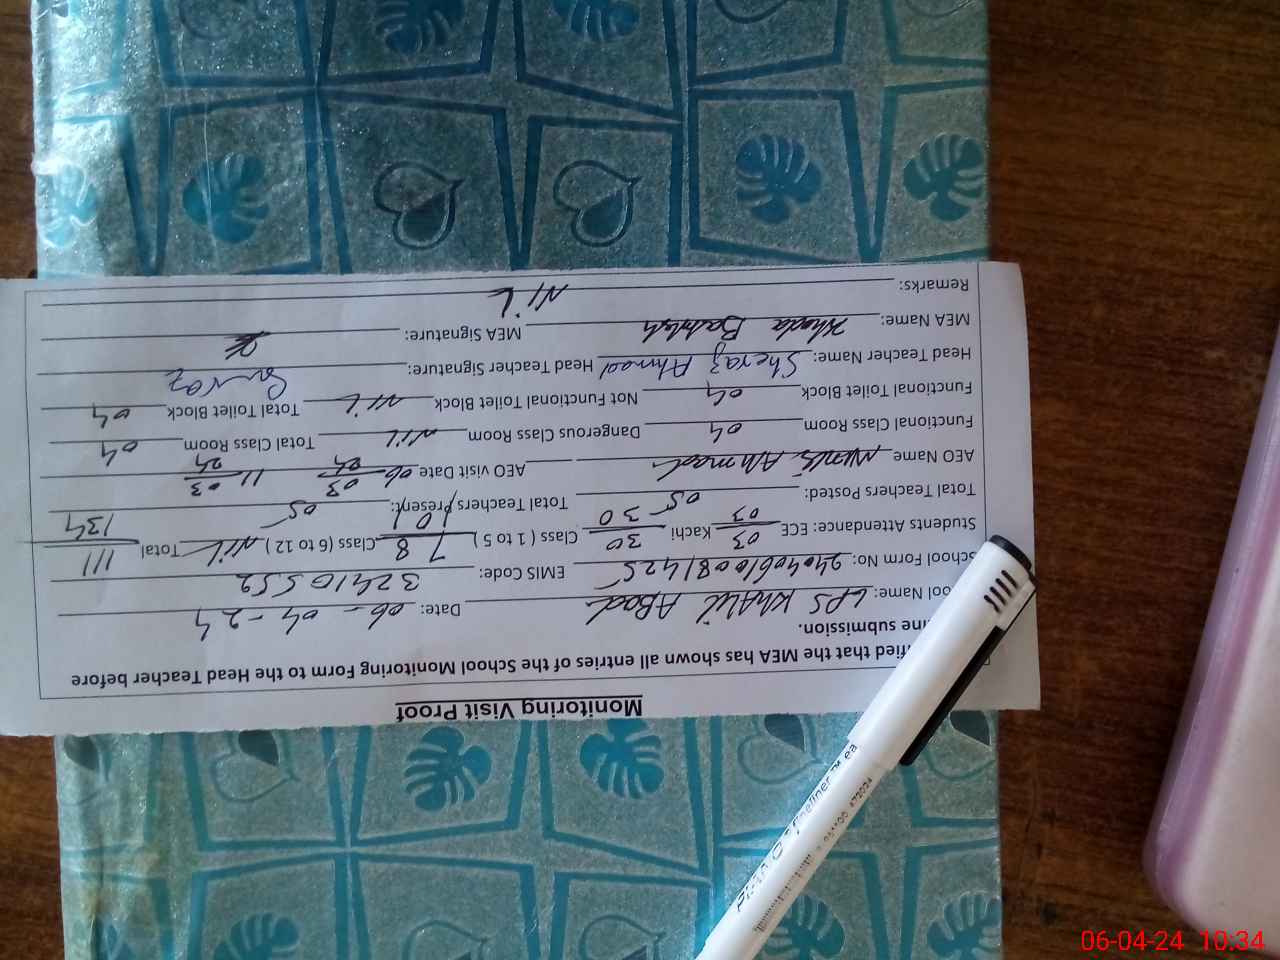 Monitoring Visit Proof
ified that the MEA has shown all entries of the School Monitoring Form to the Head Teacher before
ine submission.
ool Name: GPS KHALIL ABad Date: 06-04-24
School Form No: 24040610081425 EMIS Code: 32410552
Students Attendance: ECE 03/03 Kachi 30/30 Class ( 1 to 5 ) 78/101 Class (6 to 12 ) NiL Total 111/134
Total Teachers Posted: 05 Total Teachers Present: 05
AEO Name Ahmad AEO visit Date 06 03 24 11 03 24
Functional Class Room 04 Dangerous Class Room NiL Total Class Room 04
Functional Toilet Block 04 Not Functional Toilet Block NiL Total Toilet Block 04
Head Teacher Name: Sheraz Ahmad Head Teacher Signature:
MEA Name: Khuda Bakhsh MEA Signature:
Remarks: NiL
06-04-24 10:34